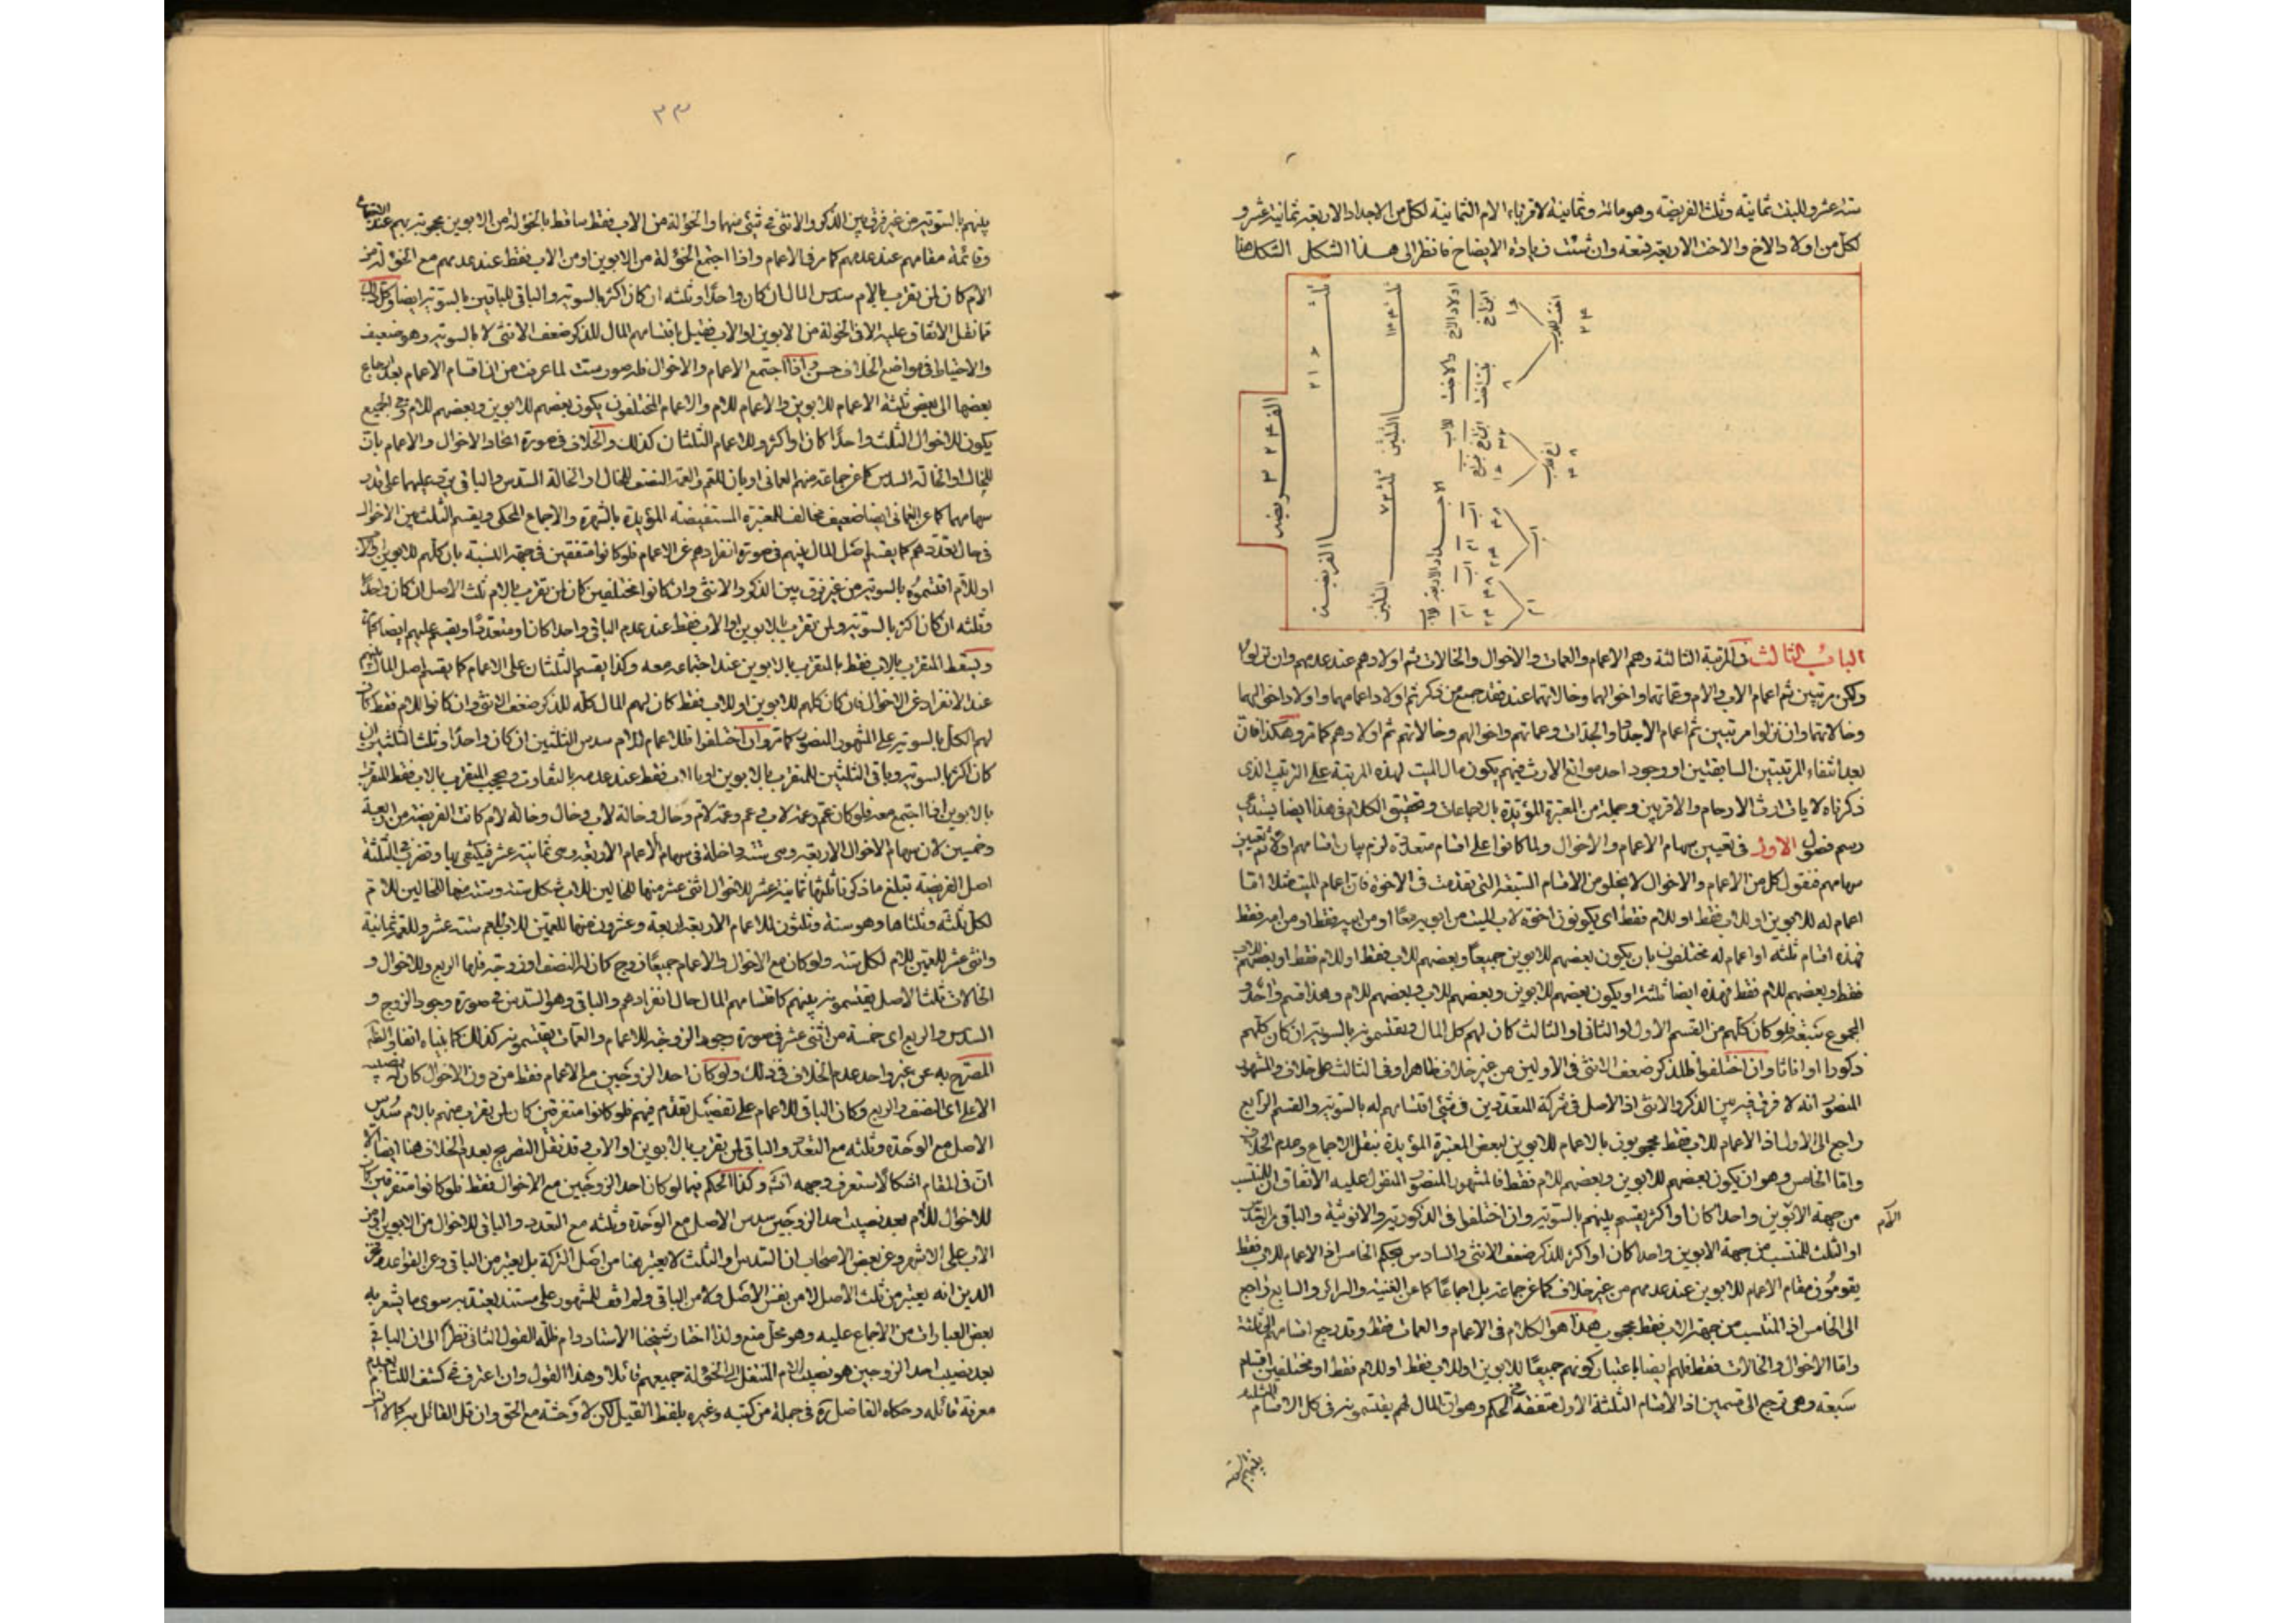 ستة عشر وللبنت ثمانية وثلث الفريضة وهو مائة وثمانية لاقرباء الام الثمانية لكل من الاجداد الاربعة ثمانية عشر و
لكل من اولاد الاخ والاخت الاربعة تسعة وان شئت زيادة الايضاح فانظر الى هذا الشكل الشكل هذا
الفريضة
٣٢٤
الفريضة
ثلث
٢١٦
الثلثين
ثلث
٧٢
الثلثين
اولاد الاخ
والاخت
للاب
ابن اخ
بنت اخت
اخت للاب
اخ للاب
الباب الثالث في المرتبة الثالثة وهم الاعمام والعمات والاخوال والخالات ثم اولادهم عند عدمهم وان نزلوا
ولكن مرتبين ثم اعمام الاب والام وعماتهما واخوالهما وخالاتهما عند فقد جميع من ذكر ثم اولاد اعمامهما واولاد اخوالهما
وخالاتهما وان نزلوا مرتبين ثم اعمام الاجداد والجدات وعماتهم واخوالهم وخالاتهم ثم اولادهم كما مر وهكذا فان
بعد انتفاء المرتبتين السابقتين او وجود احد موانع الارث فيهم يكون مال الميت لهذه المرتبة على الترتيب الذي
ذكرناه لايات ارث الارحام والاقربين وجملة من المعتبرة المؤيدة بالاجماعات وتحقيق الكلام في هذا ايضا يستدعي
رسم فصول الاول في تعيين سهام الاعمام والاخوال ولما كانوا على اقسام متعددة لزم بيان اقسامهم اولا ثم تعيين
سهامهم فنقول كل من الاعمام والاخوال لا يخلو من الاقسام السبعة التي تقدمت في الاخوة فان اعمام الميت مثلا اما
اعمام له للابوين او للاب فقط او للام فقط اي يكونون اخوة لاب الميت من ابويه معا او من ابيه فقط او من امه فقط
فهذه اقسام ثلثة او اعمام له مختلفون بان يكون بعضهم للابوين جميعا وبعضهم للاب فقط او للام فقط او بعضهم للاب
فقط وبعضهم للام فقط فهذه ايضا ثلثة او يكون بعضهم للابوين وبعضهم للاب وبعضهم للام وهذا قسم واحد و
المجموع سبعة فلو كان كلهم من القسم الاول او الثاني او الثالث كان لهم كل المال ويقتسمونه بالسوية ان كان كلهم
ذكورا او اناثا وان اختلفوا فللذكر ضعف الانثى في الاولين من غير خلاف ظاهر وفي الثالث على خلاف والمشهور
المنصور انه لا فرق فيه بين الذكر والانثى اذ الاصل في شركة المتعددين في شئ اقتسامهم له بالسوية والقسم الرابع
راجع الى الاول اذ الاعمام للاب فقط محجوبون بالاعمام للابوين لبعض المعتبرة المؤيدة بنقل الاجماع وعدم الخلاف
واما الخامس وهو ان يكون بعضهم للابوين وبعضهم للام فقط فالمشهور المنصور المنقول عليه الاتفاق ان للمنتسب
من جهة الام واحدا كان او اكثر يقسم بينهم بالسوية وان اختلفوا في الذكورية والانوثية والباقي
او الثلث للمنتسب من جهة الابوين واحدا كان او اكثر للذكر ضعف الانثى والسادس بحكم الخامس اذ الاعمام للاب فقط
يقومون مقام الاعمام للابوين عند عدمهم من غير خلاف كما عن جماعة بل اجماعا كما عن الغنية والسرائر والسابع راجع
الى الخامس اذ المنتسب من جهة الاب فقط محجوب هذا هو الكلام في الاعمام والعمات فقط وقد رجع اقسامهم الى ثلثة
واما الاخوال والخالات فقط فلهم ايضا باعتبار كونهم جميعا للابوين او للاب فقط او للام فقط او مختلفين اقسام
سبعة وهي ترجع الى قسمين اذ الاقسام الثلثة الاول متفقة في الحكم وهو ان المال لهم يقتسمونه في كل الاقسام الثلثة
٣٣
بينهم بالسوية من غير فرق بين الذكر والانثى في شئ منها والخؤلة من الاب فقط ساقط بالخؤلة من الابوين محجوبة بهم عند الاجتماع
وقائمة مقامهم عند عدمهم كما مر في الاعمام واذا اجتمع الخؤلة من الابوين او من الاب فقط عند عدمهم مع الخؤلة من
الام كان لمن تقرب بالام سدس المال ان كان واحدا وثلثه ان كان اكثر بالسوية والباقي للباقين بالسوية ايضا وكل ذلك
مما نقل الاتفاق عليه الا في الخؤلة من الابوين او الاب فقيل باقتسامهم المال للذكر ضعف الانثى لا بالسوية وهو ضعيف
والاحتياط في مواضع الخلاف حسن واذا اجتمع الاعمام والاخوال فله صور ست لما عرفت من ان اقسام الاعمام بعد ارجاع
بعضها الى بعض ثلثة الاعمام للابوين والاعمام للام والاعمام المختلفون يكون بعضهم للابوين وبعضهم للام وفي الجميع
يكون للاخوال الثلث واحدا كان او اكثر وللاعمام الثلثان كذلك والخلاف في صورة اتحاد الاخوال والاعمام بان
للخال او الخالة السدس كما عن جماعة منهم العماني او بان للعم والعمة النصف وللخال او الخالة السدس والباقي يرد عليهما على قدر
سهامهما كما عن العماني ايضا ضعيف مخالف للمعتبرة المستفيضة المؤيدة بالشهرة والاجماع المحكي ويقسم الثلث بين الاخوال
في حال تعددهم كما يقسم اصل المال بينهم في صورة انفرادهم عن الاعمام فلو كانوا متفقين في جهة النسبة بان كلهم للابوين او للاب
او للام اقتسموه بالسوية من غير فرق بين الذكور والانثى وان كانوا مختلفين كان لمن تقرب بالام ثلث الاصل ان كان واحدا
وثلثه ان كان اكثر بالسوية ولمن تقرب بالابوين او الاب فقط عند عدم الباقي واحدا كان او متعددا ويقسم عليهم ايضا كما مر
ويسقط المتقرب بالاب فقط بالمتقرب بالابوين عند اجتماعه معه وكذا يقسم الثلثان على الاعمام كما يقسم اصل المال بينهم
عند الانفراد عن الاخوال فان كان كلهم للابوين او للاب فقط كان لهم المال كله للذكر ضعف الانثى وان كانوا للام فقط كان
لهم الكل بالسوية على المشهور المنصور كما مر وان اختلفوا فللاعمام للام سدس الثلثين ان كان واحدا وثلث الثلثين ان
كان اكثر بالسوية وباقي الثلثين للمتقرب بالابوين او بالاب فقط عند عدمه بالتفاوت ويحجب المتقرب بالاب فقط المتقرب
بالابوين اذا اجتمع معه فلو كان عم وعمة لاب وعم وعمة لام وخال وخالة لاب وخال وخالة لام كانت الفريضة من اربعة
وخمسين لان سهام الاخوال الاربعة وهي ستة داخلة في سهام الاعمام الاربعة وهي ثمانية عشر فيكتفى بها وتضرب في الثلثة
اصل الفريضة تبلغ ما ذكرنا ثلثها ثمانية عشر للاخوال اثنى عشر منها للخالين للاب لكل ستة وستة منها للخالين للام
لكل ثلثة وثلثاها وهو ستة وثلثون للاعمام الاربعة اربعة وعشرون منها للعمين للاب للعم ستة عشر وللعمة ثمانية
واثنى عشر للعمين للام لكل ستة ولو كان مع الاخوال والاعمام جميعا زوج كان له النصف او زوجة فلها الربع وللاخوال و
الخالات ثلث الاصل يقتسمونه بينهم كاقتسامهم المال حال انفرادهم والباقي وهو السدس في صورة وجود الزوج و
السدس والربع اي خمسة من اثنى عشر في صورة وجود الزوجة للاعمام والعمات يقتسمونه كذلك كما بيناه انفا والظاهر
المصرح به عن غير واحد عدم الخلاف في ذلك ولو كان احد الزوجين مع الاعمام فقط من دون الاخوال كان له نصيبه
الاعلى اي النصف والربع وكان الباقي للاعمام على تفصيل تقدم فيهم فلو كانوا متفرقين كان لمن تقرب منهم بالام سدس
الاصل مع الوحدة وثلثه مع التعدد والباقي لمن تقرب بالابوين او الاب وقد نقل التصريح بعدم الخلاف هنا ايضا الا
ان في المقام اشكالا ستعرف وجهه وكذا الحكم فيما لو كان احد الزوجين مع الاخوال فقط فلو كانوا متفرقين كان
للاخوال للام بعد نصيب احد الزوجين سدس الاصل مع الوحدة وثلثه مع التعدد والباقي للاخوال من الابوين او من
الاب على الاشهر وعن بعض الاصحاب ان السدس او الثلث لا يعتبر هنا من اصل التركة بل يعتبر من الباقي وعن القواعد وفخر
الدين انه يعتبر من ثلث الاصل لا من نفس الاصل ولا من الباقي ولم اقف للمشهور على مستند يعتد به سوى ما يشعر به
بعض العبارات من الاجماع عليه وهو محل منع ولذا اختار شيخنا الاستاد دام ظله القول الثاني نظرا الى ان الباقي
بعد نصيب احد الزوجين هو نصيب الام المنتقل الى الخؤلة جميعهم قائلا وهذا القول وان اعترف في كشف اللثام بعدم
معرفة قائله وحكاه الفاضل ره في جملة من كتبه وغيره بلفظ القيل لكن لا وحشة مع الحق وان قل القائل به